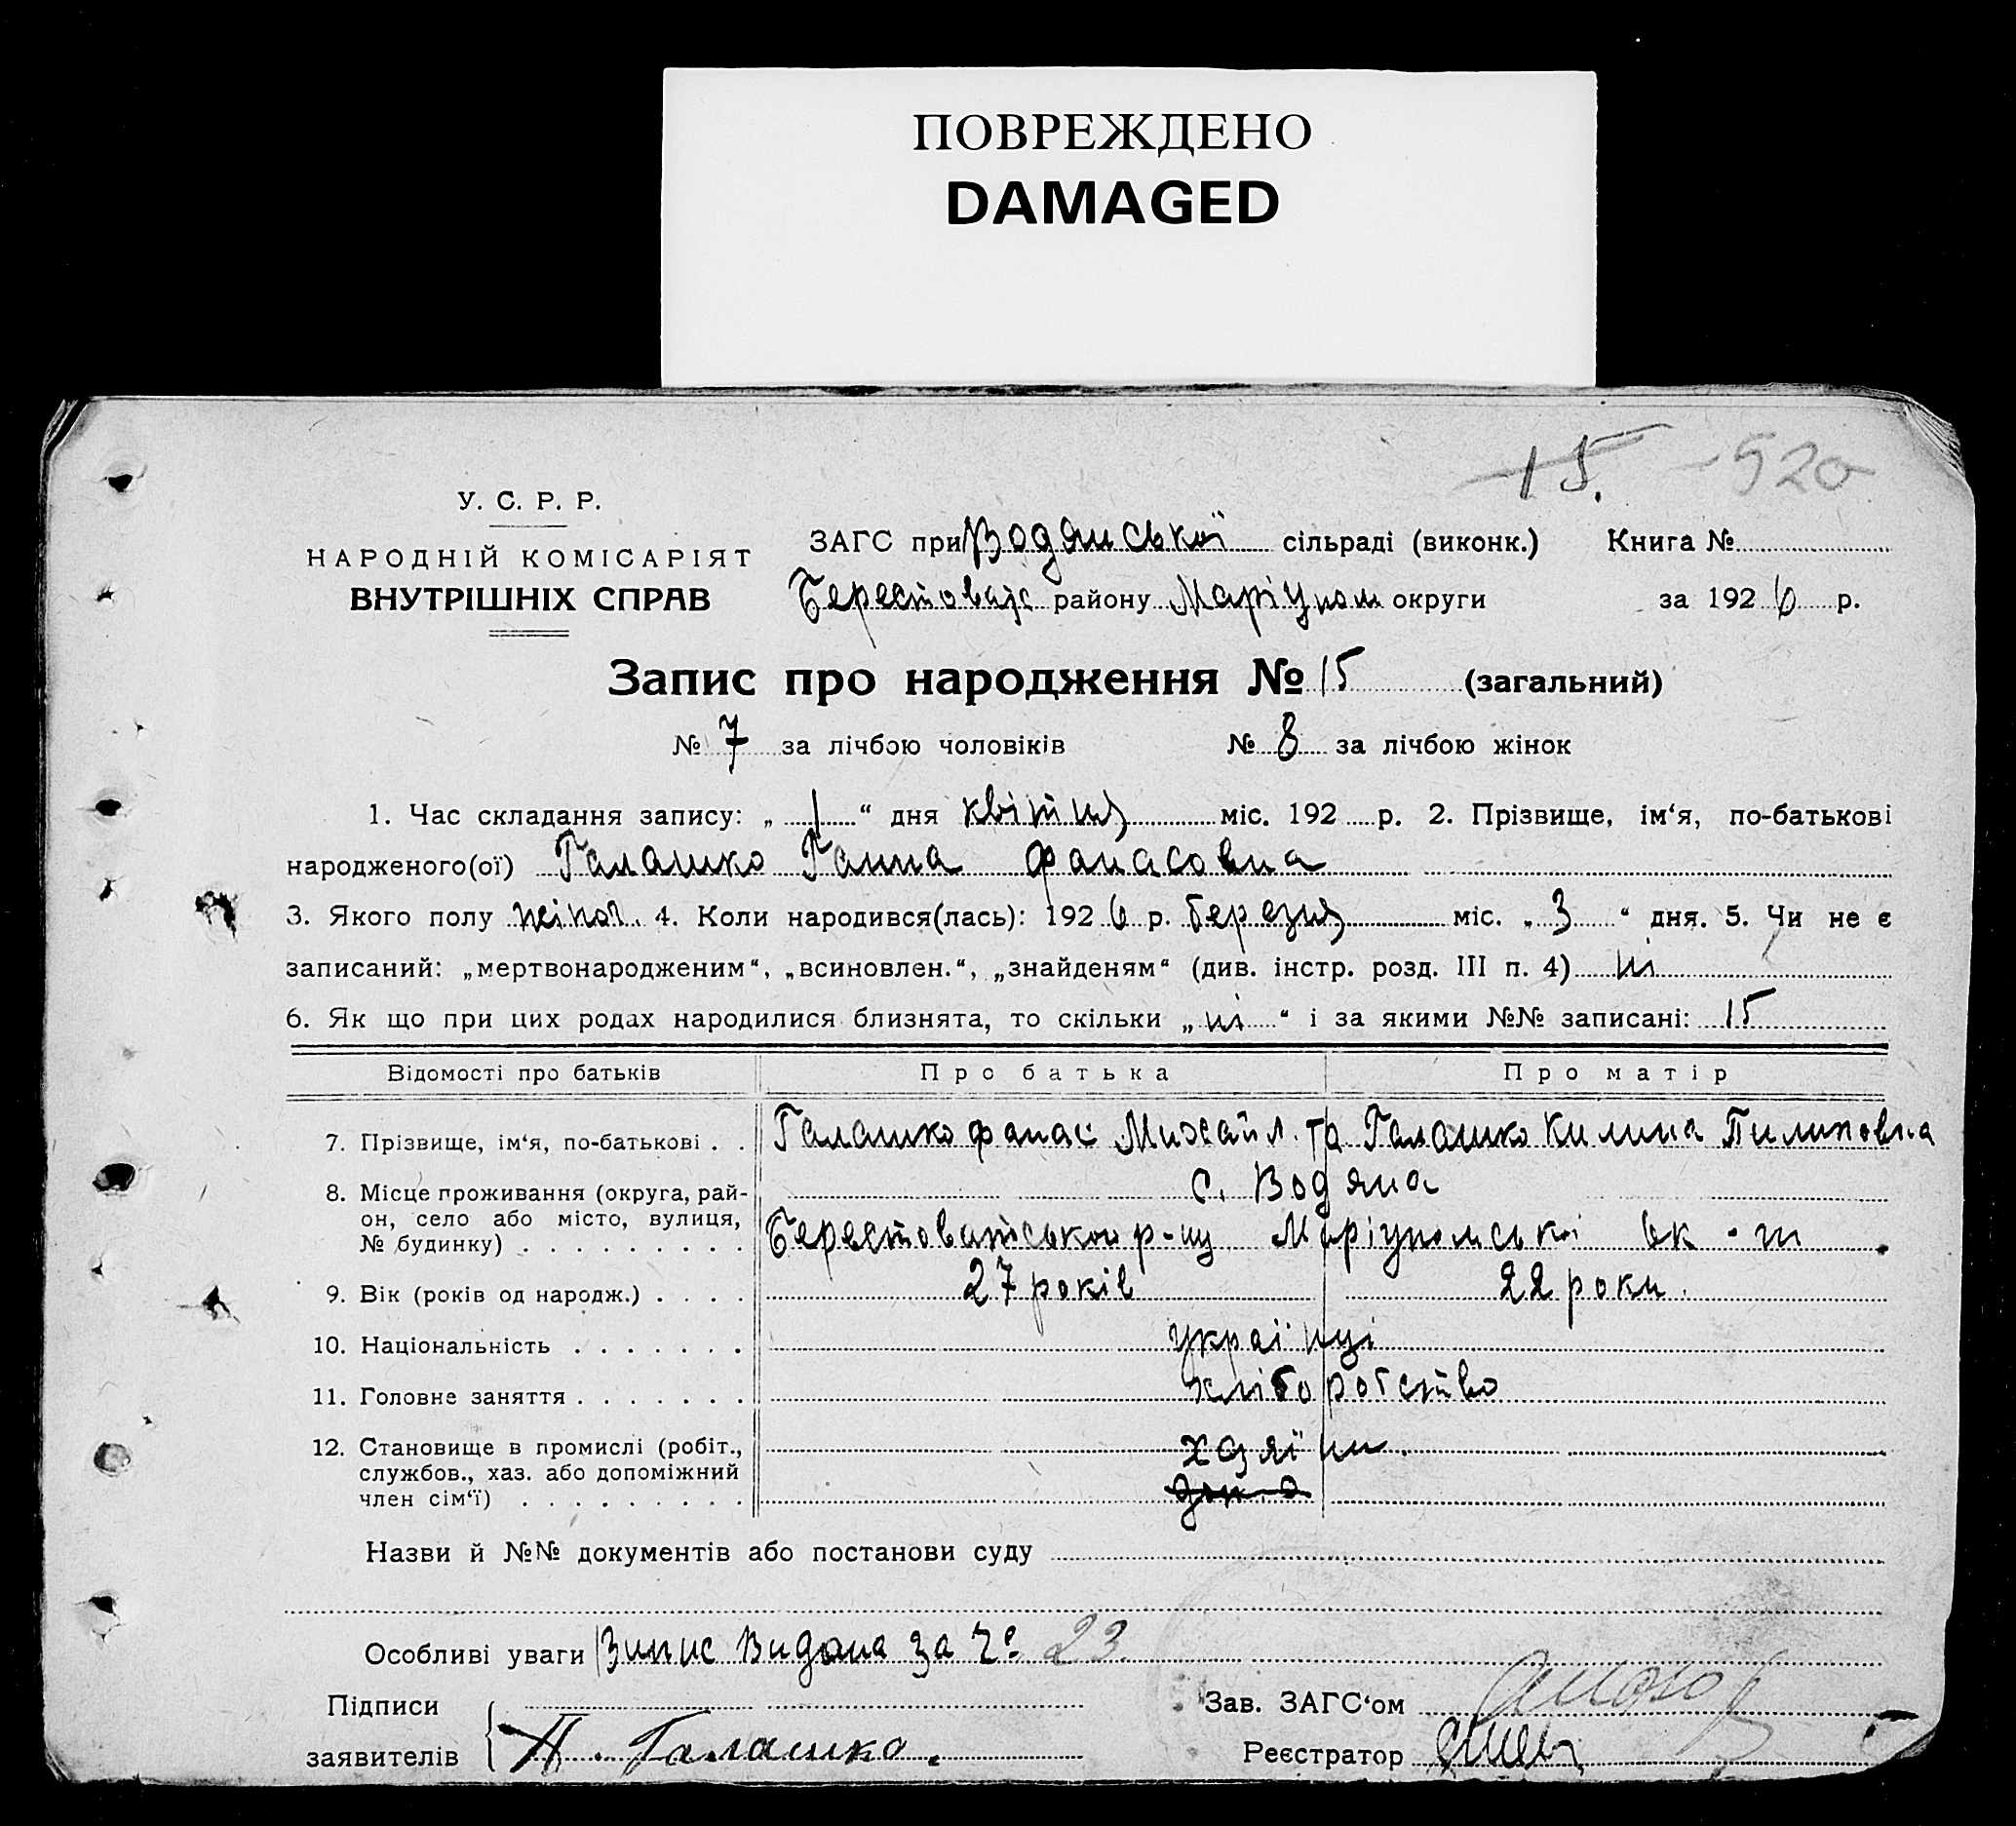 ПОВРЕЖДЕНО
DAMAGED
15. 520
У. С. Р. Р.
НАРОДНІЙ КОМІСАРІЯТ
ВНУТРІШНІХ СПРАВ
ЗАГС при Водянській сільраді (виконк.) Книга №
району Маріупол округи за 1926 р.
Запис про народження № 15 (загальний)
№ 7 за лічбою чоловіків № 8 за лічбою жінок
1. Час складання запису: „ 1 “ дня квітня міс. 192 р. 2. Прізвище, ім‘я, по-батькові
народженого(ої) Галашко Ганна Фанасовна
3. Якого полу жіноч. 4. Коли народився(лась): 1926 р. березня міс. „ 3 “ дня. 5. Чи не є
записаний: „мертвонародженим“, „всиновлен.“, „знайденям“ (див. інстр. розд. III п. 4) ні
6. Як що при цих родах народилися близнята, то скільки „ ні “ і за якими №№ записані: 15
Відомості про батьків Про батька Про матір
7. Прізвище, ім‘я, по-батькові . . Галашко Фанас Михайл. та Галашко Килина Пилиповна
8. Місце проживання (округа, рай- с. Водяна
он, село або місто, вулиця,
№ будинку) . . . . . . . . . Берестоватського р-ну Маріупольскі ок-ги
9. Вік (років од народж.) . . . . 27 років 22 роки.
10. Національність . . . . . . . українці
11. Головне заняття . . . . . . . хліборобство
12. Становище в промислі (робіт., хазяїни.
службов., хаз. або допоміжний
член сім‘ї) . . . . . . . . .
Назви й №№ документів або постанови суду
Особливі уваги Видана за № 23
Підписи Зав. ЗАГС‘ом
заявителів Галашко. Реєстратор